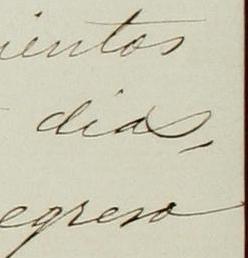 ientos
dias,
egreso